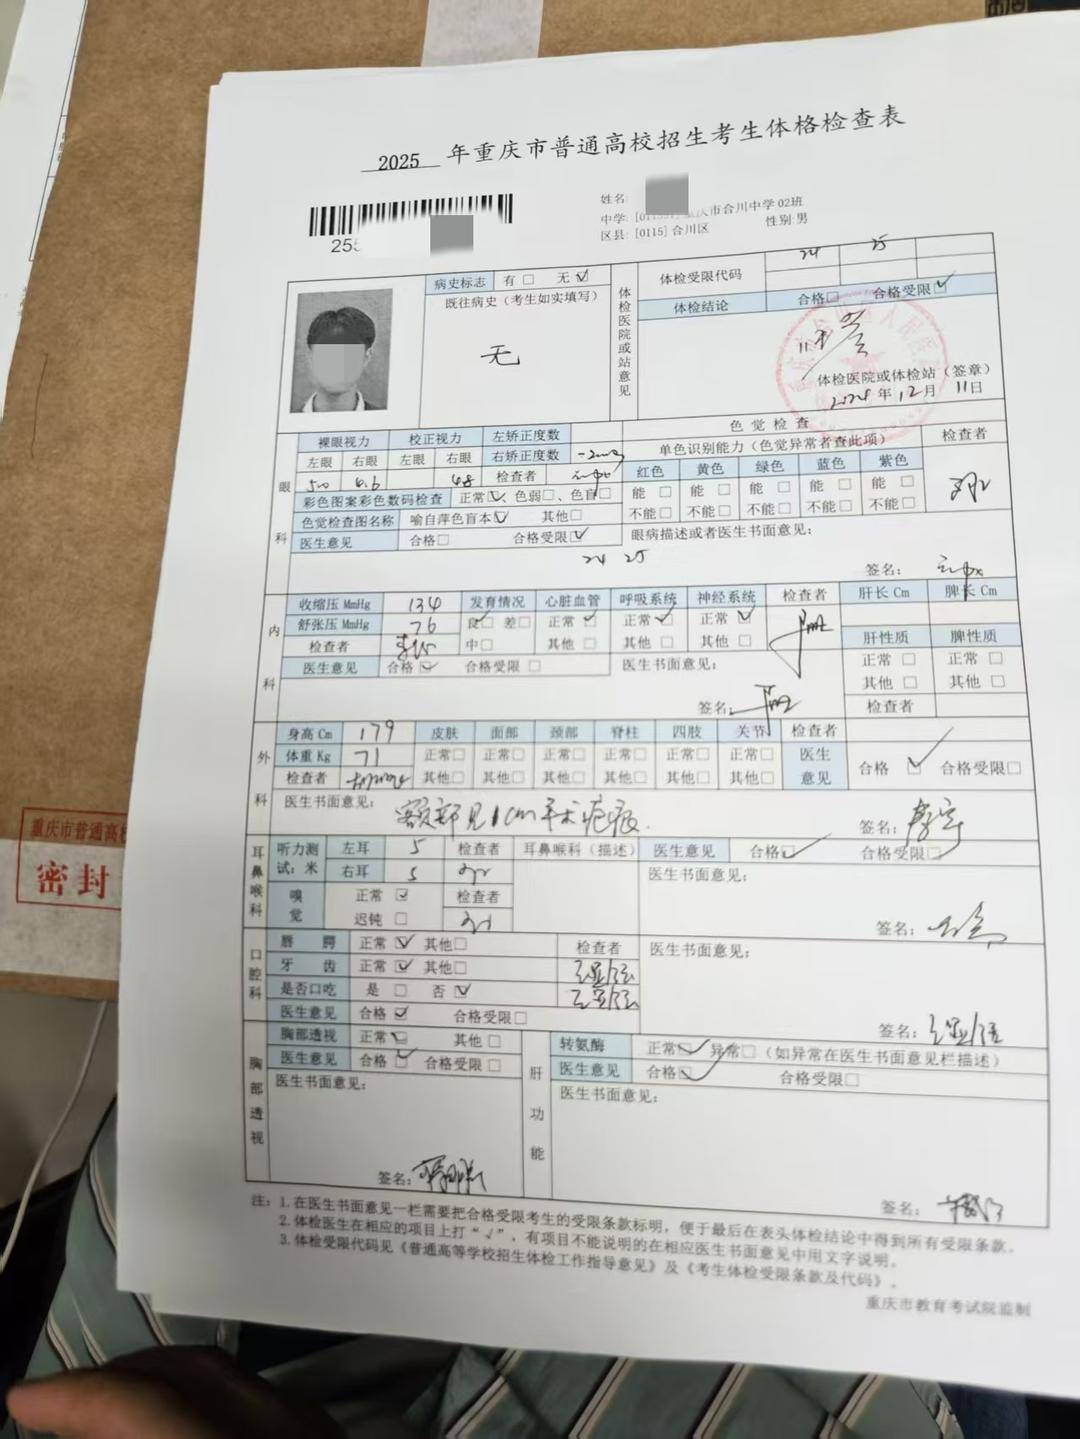 2025 年重庆市普通高校招生考生体格检查表
姓名:
中学: 重庆市合川中学 02班
区县: [0115] 合川区 性别:男
255
病史标志 有□ 无☑
既往病史（考生如实填写）
无
体检医院或站意见
体检受限代码 24 25
体检结论 合格□ 合格受限☑
体检医院或体检站（签章）
2024年12月11日
眼科
裸眼视力 校正视力 左矫正度数
左眼 右眼 左眼 右眼 右矫正度数
5.0 4.6 4.8 检查者
色觉检查
单色识别能力（色觉异常者查此项） 检查者
红色 黄色 绿色 蓝色 紫色
能□ 能□ 能□ 能□ 能□
不能□ 不能□ 不能□ 不能□ 不能□
彩色图案彩色数码检查 正常☑、色弱□、色盲□
色觉检查图名称 喻自萍色盲本☑ 其他□
医生意见 合格□ 合格受限☑
眼病描述或者医生书面意见:
24 25
签名:
内科
收缩压 MmHg 134 发育情况 心脏血管 呼吸系统 神经系统 检查者 肝长 Cm 脾长 Cm
舒张压 MmHg 76 良☑ 差□ 正常☑ 正常☑ 正常☑
检查者 中□ 其他□ 其他□ 其他□ 肝性质 脾性质
医生意见 合格☑ 合格受限□ 医生书面意见: 正常□ 正常□
其他□ 其他□
签名: 检查者
外科
身高 Cm 179 皮肤 面部 颈部 脊柱 四肢 关节 检查者
体重 Kg 71 正常□ 正常□ 正常□ 正常□ 正常□ 正常□ 医生意见 合格☑ 合格受限□
检查者 其他□ 其他□ 其他□ 其他□ 其他□ 其他□
医生书面意见: 额部见1cm手术疤痕.
签名:
耳鼻喉科
听力测试:米 左耳 5 检查者 耳鼻喉科（描述） 医生意见 合格☑ 合格受限□
右耳 5 医生书面意见:
嗅觉 正常☑ 检查者
迟钝□ 签名:
口腔科
唇腭 正常☑ 其他□ 检查者 医生书面意见:
牙齿 正常☑ 其他□
是否口吃 是□ 否☑
医生意见 合格☑ 合格受限□ 签名:
胸部透视
胸部透视 正常☑ 其他□
医生意见 合格☑ 合格受限□
医生书面意见:
签名:
肝功能
转氨酶 正常☑ 异常□（如异常在医生书面意见栏描述）
医生意见 合格☑ 合格受限□
医生书面意见:
签名:
注: 1.在医生书面意见一栏需要把合格受限考生的受限条款标明，便于最后在表头体检结论中得到所有受限条款。
2.体检医生在相应的项目上打“√”，有项目不能说明的在相应医生书面意见中用文字说明。
3.体检受限代码见《普通高等学校招生体检工作指导意见》及《考生体检受限条款及代码》.
重庆市教育考试院监制
重庆市普通高校
密封